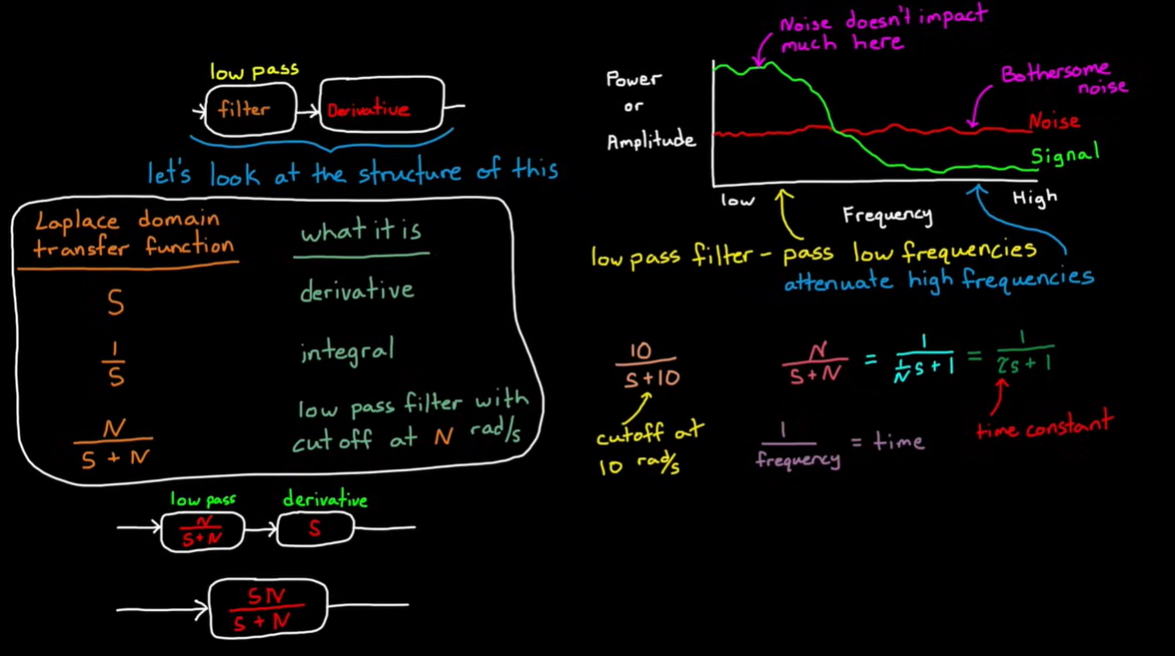 low pass
filter
Derivative
let's look at the structure of this
Laplace domain
transfer function
what it is
S
derivative
1
S
integral
N
S + N
low pass filter with
cutoff at N rad/s
low pass
derivative
N
S+N
S
SN
S + N
Noise doesn't impact
much here
Power
or
Amplitude
Bothersome
noise
Noise
Signal
low
Frequency
High
low pass filter - pass low frequencies
attenuate high frequencies
10
S+10
cutoff at
10 rad/s
N
S+N
=
1
1/N S+1
=
1
τs+1
time constant
1
frequency
= time